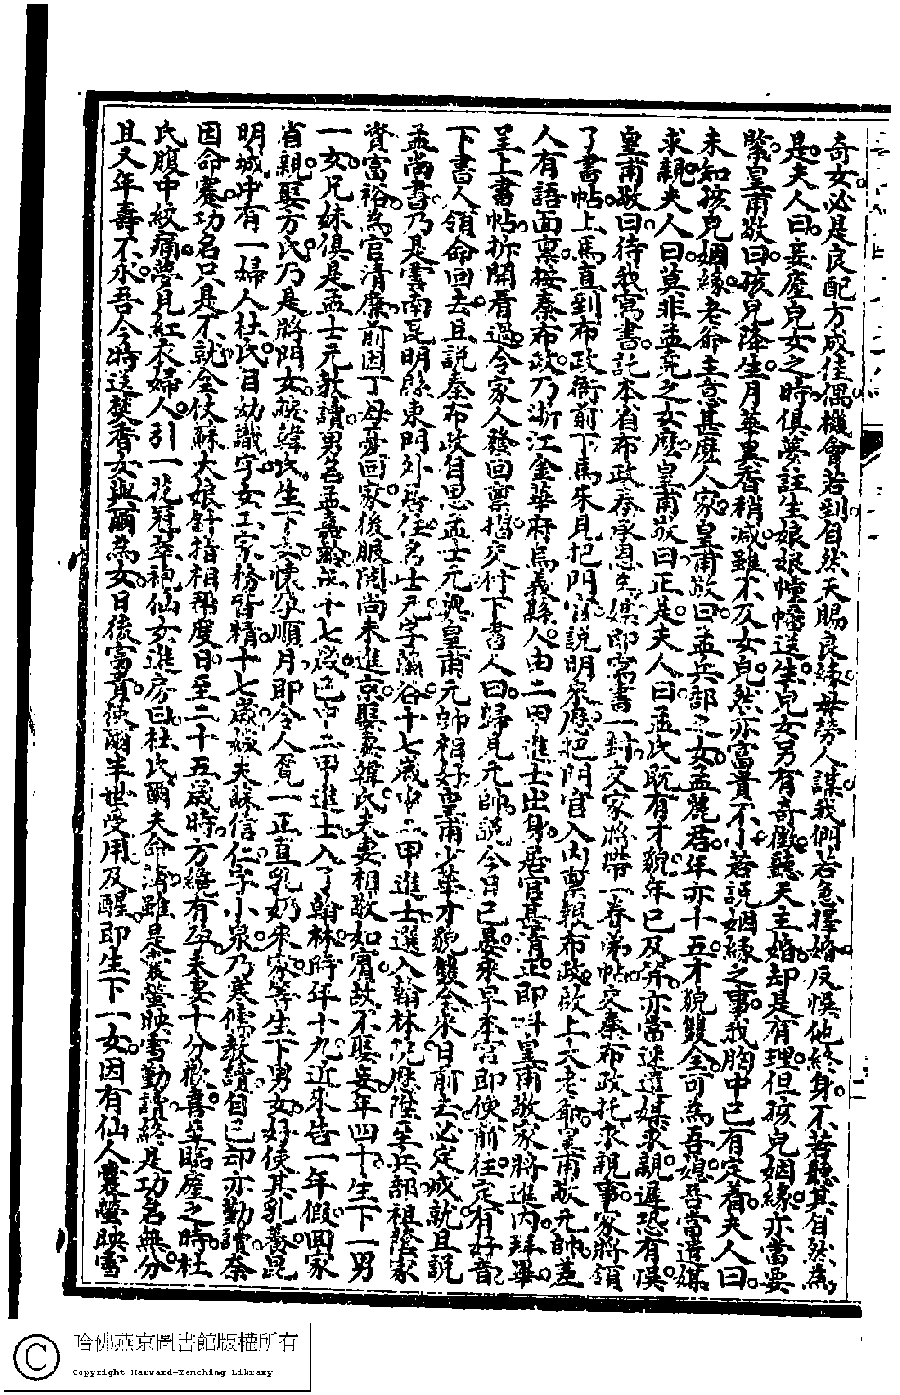 奇女必是良配方成佳偶機會若到自然天賜良緣毋勞人謀我們若急擇婚反悞他終身不若聽其自然為
是夫人曰妾產兒女之時俱夢註生娘娘幢幡送生兒女另有奇徵聽天主婚却是有理但孩兒姻緣亦當要
緊皇甫敬曰孩兒降生月華異香稍減雖不及女兒然亦富貴不小若說姻緣之事我胸中已有定着夫人曰
未知孩兒姻緣老爺主意甚麼人家皇甫敬曰孟兵部之女孟麗君年亦十五才貌雙全可為吾媳吾當遣媒
求親夫人曰莫非孟亮之女麼皇甫敬曰正是夫人曰孟氏既有才貌年已及笄亦當速遣媒求親遲恐有悞
皇甫敬曰待我寫書託本省布政秦承恩為媒即寫書一封交家將帶一眷弟帖交秦布政托求親事家將領
了書帖上馬直到布政衙前下馬來見把門官說明來歷把門官入內稟報布政啟上大老爺皇甫敬元帥差
人有語面稟按秦布政乃浙江金華府烏義縣人由二甲進士出身居官甚清正即叫皇甫敬家將進內拜畢
呈上書帖拆開看過令家人發回稟摺交付下書人曰歸見元帥說今日已晏來早本官即便前往定有好音
下書人領命回去且說秦布政自思孟士元與皇甫元帥相好皇甫少華才貌雙全來日前去必定成就且說
孟尚書乃是雲南昆明縣東門外居住名士元字蘭谷十七歲中二甲進士選入翰林院歷陞至兵部祖蔭家
資富裕為官清廉前因丁母憂回家後服闋尚未進京娶妻韓氏夫妻相敬如賓故不娶妾年四十生下一男
一女兄妹俱是孟士元教讀男名孟嘉齡年十七歲已中二甲進士入了翰林時年十九近來告一年假回家
省親娶方氏乃是將門女旣韓氏生下妾懷孕順月即令人覓一正直乳奶來家等生下男女好使其乳養昆
明城中有一婦人杜氏自幼識字女工家務皆精十七歲嫁夫蘇信仁字小泉乃寒儒教讀自己却亦勤讀奈
因命蹇功名只是不就全仗蘇大娘針指相幫度日至二十五歲時方纔有孕夫妻十分歡喜至臨產之時杜
氏腹中絞痛夢見紅衣婦人引一花冠萃袍仙女進房曰杜氏爾夫命薄雖是囊螢映雪勤讀終是功名無分
且又年壽不永吾今將送焚香女與爾為女日後富貴使爾半世受用及醒即生下一女因有仙人囊螢映雪
哈佛燕京圖書館版權所有
Copyright Harvard-Yenching Library